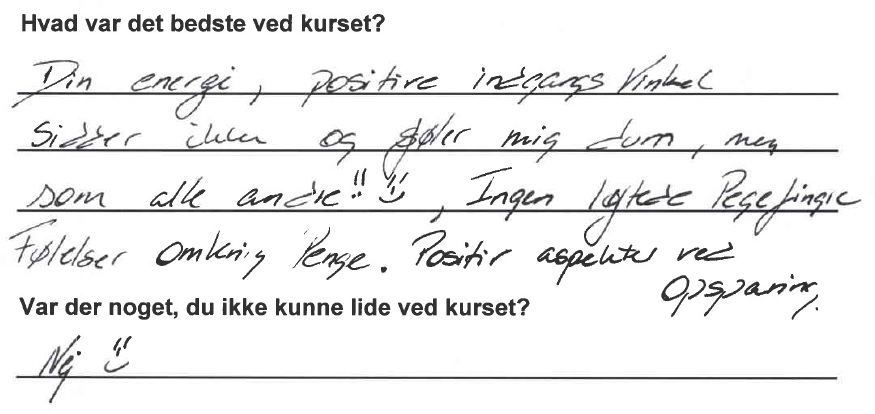 Hvad var det bedste ved kurset?
Din energi, positive indgangs vinkel
Sidder ikke og føler mig dum, men
som alle andre!! ü, Ingen løftede Pegefingre
Følelser omkring Penge. Positiv aspekter ved
Opsparing.
Var der noget, du ikke kunne lide ved kurset?
Nej ü